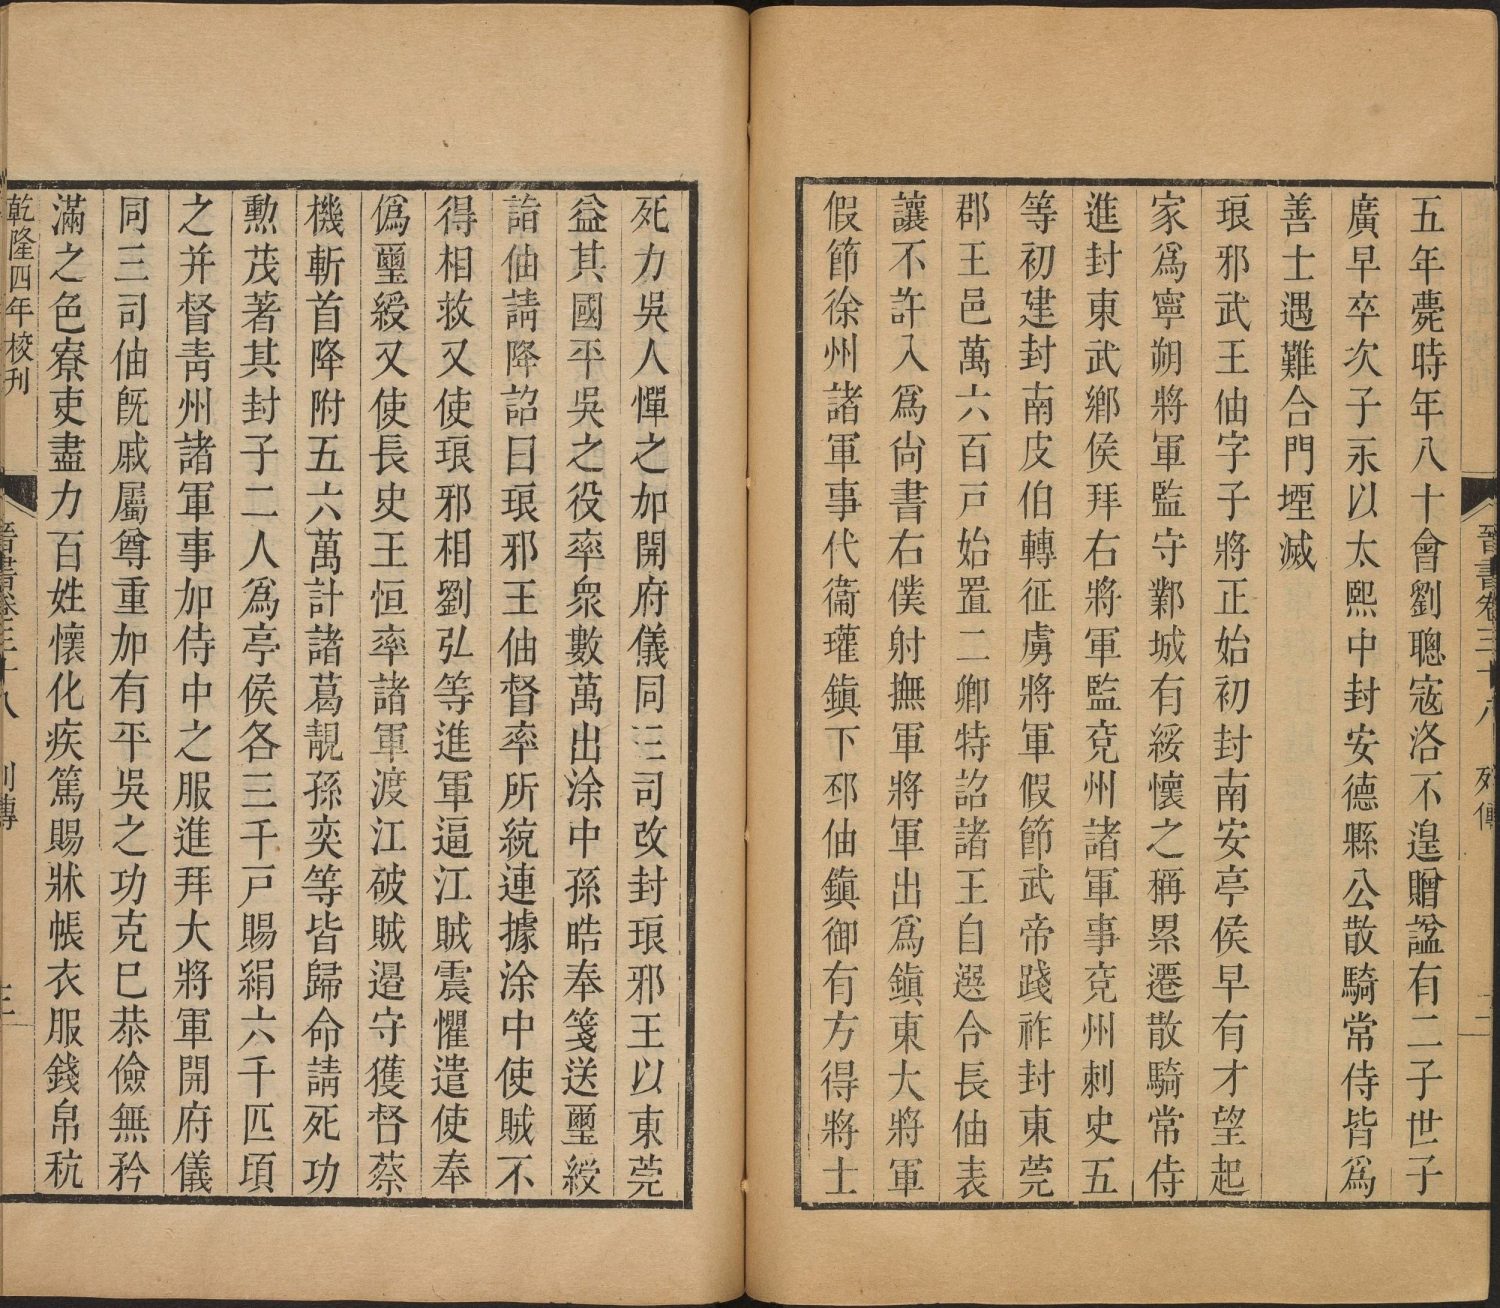 晉書卷三十八 列傳 二
五年薨時年八十會劉聰寇洛不遑贈諡有二子世子
廣早卒次子永以太熙中封安德縣公散騎常侍皆爲
善士遇難合門堙滅
琅邪武王伷字子將正始初封南安亭侯早有才望起
家爲寧朔將軍監守鄴城有綏懷之稱累遷散騎常侍
進封東武鄉侯拜右將軍監兗州諸軍事兗州刺史五
等初建封南皮伯轉征虜將軍假節武帝踐祚封東莞
郡王邑萬六百戸始置二卿特詔諸王自選令長伷表
讓不許入爲尚書右僕射撫軍將軍出爲鎭東大將軍
假節徐州諸軍事代衞瓘鎭下邳伷鎭御有方得將士
死力吳人憚之加開府儀同三司改封琅邪王以東莞
益其國平吳之役率衆數萬出涂中孫皓奉箋送璽綬
詣伷請降詔曰琅邪王伷督率所統連據涂中使賊不
得相救又使琅邪相劉弘等進軍逼江賊震懼遣使奉
僞璽綬又使長史王恒率諸軍渡江破賊邊守獲督蔡
機斬首降附五六萬計諸葛靚孫奕等皆歸命請死功
勲茂著其封子二人爲亭侯各三千戸賜絹六千匹頃
之并督靑州諸軍事加侍中之服進拜大將軍開府儀
同三司伷旣戚屬尊重加有平吳之功克己恭儉無矜
滿之色寮吏盡力百姓懷化疾篤賜牀帳衣服錢帛秔
乾隆四年校刊 晉書卷三十八 列傳 三